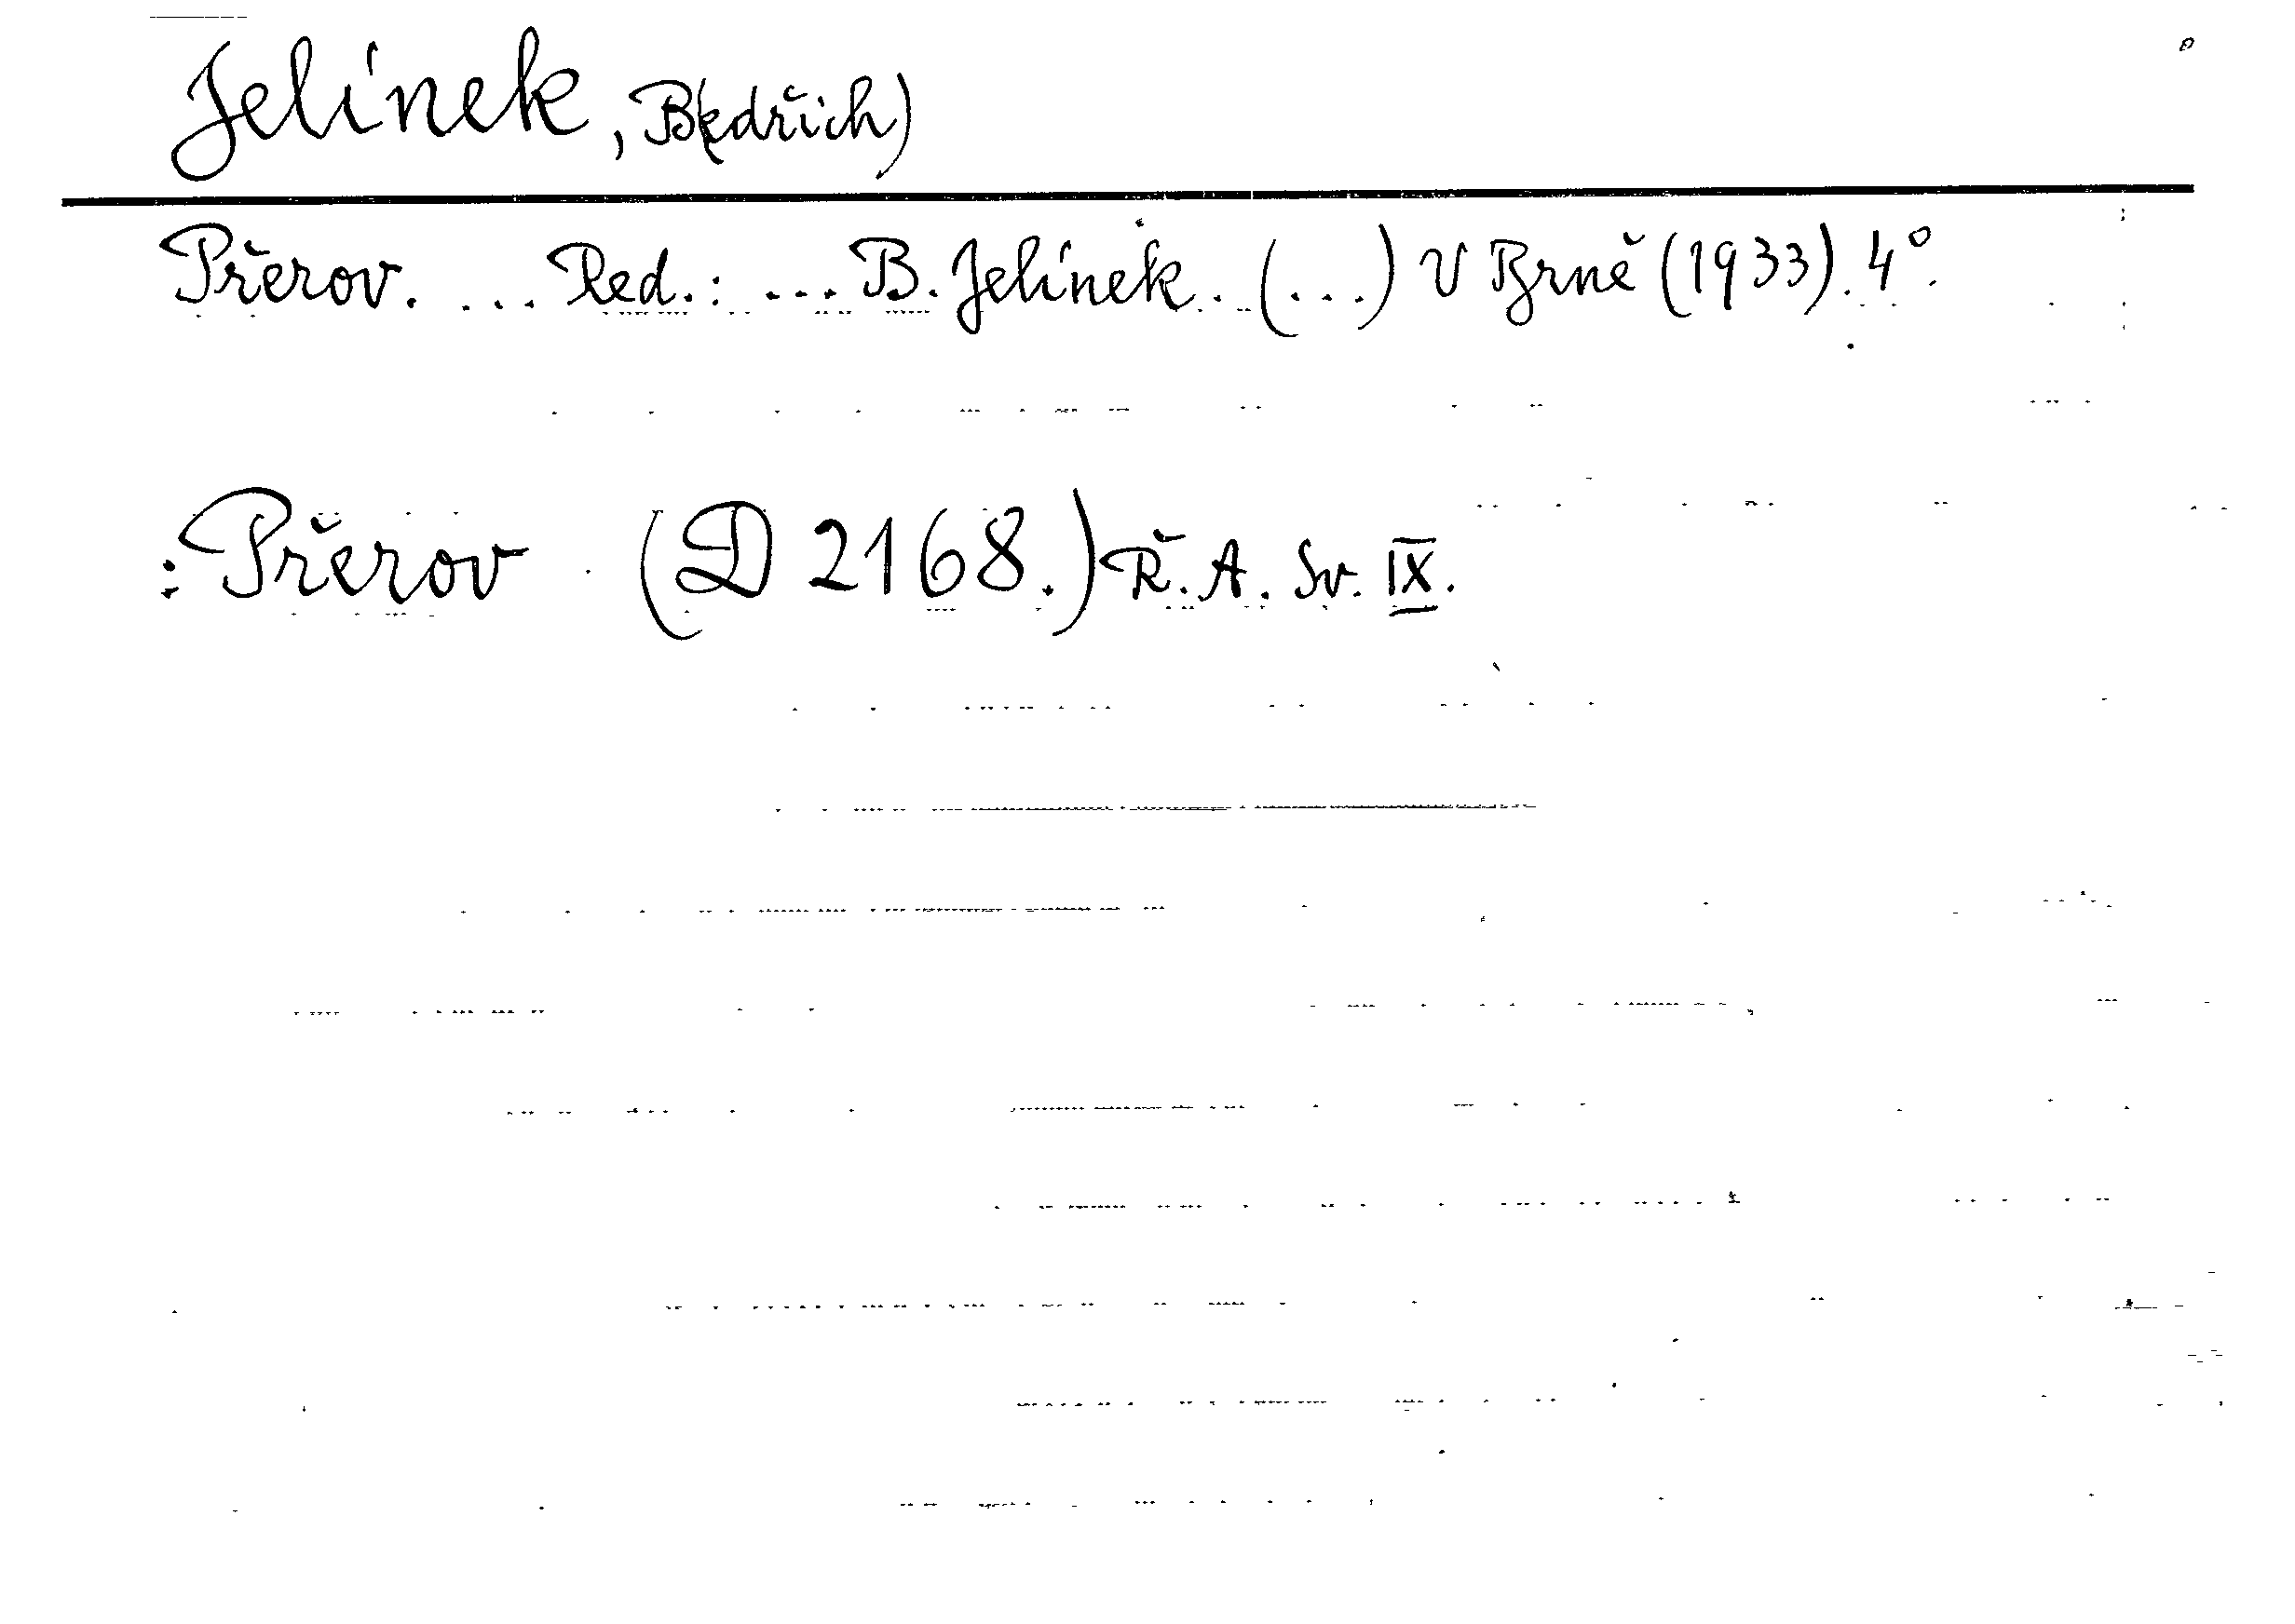 Jelínek, B(edřich)
Přerov. ... Red.: ... B. Jelínek. (...) V Brně (1933). 4°.
:Přerov (D 2168.) Ř. A. Sv. IX.